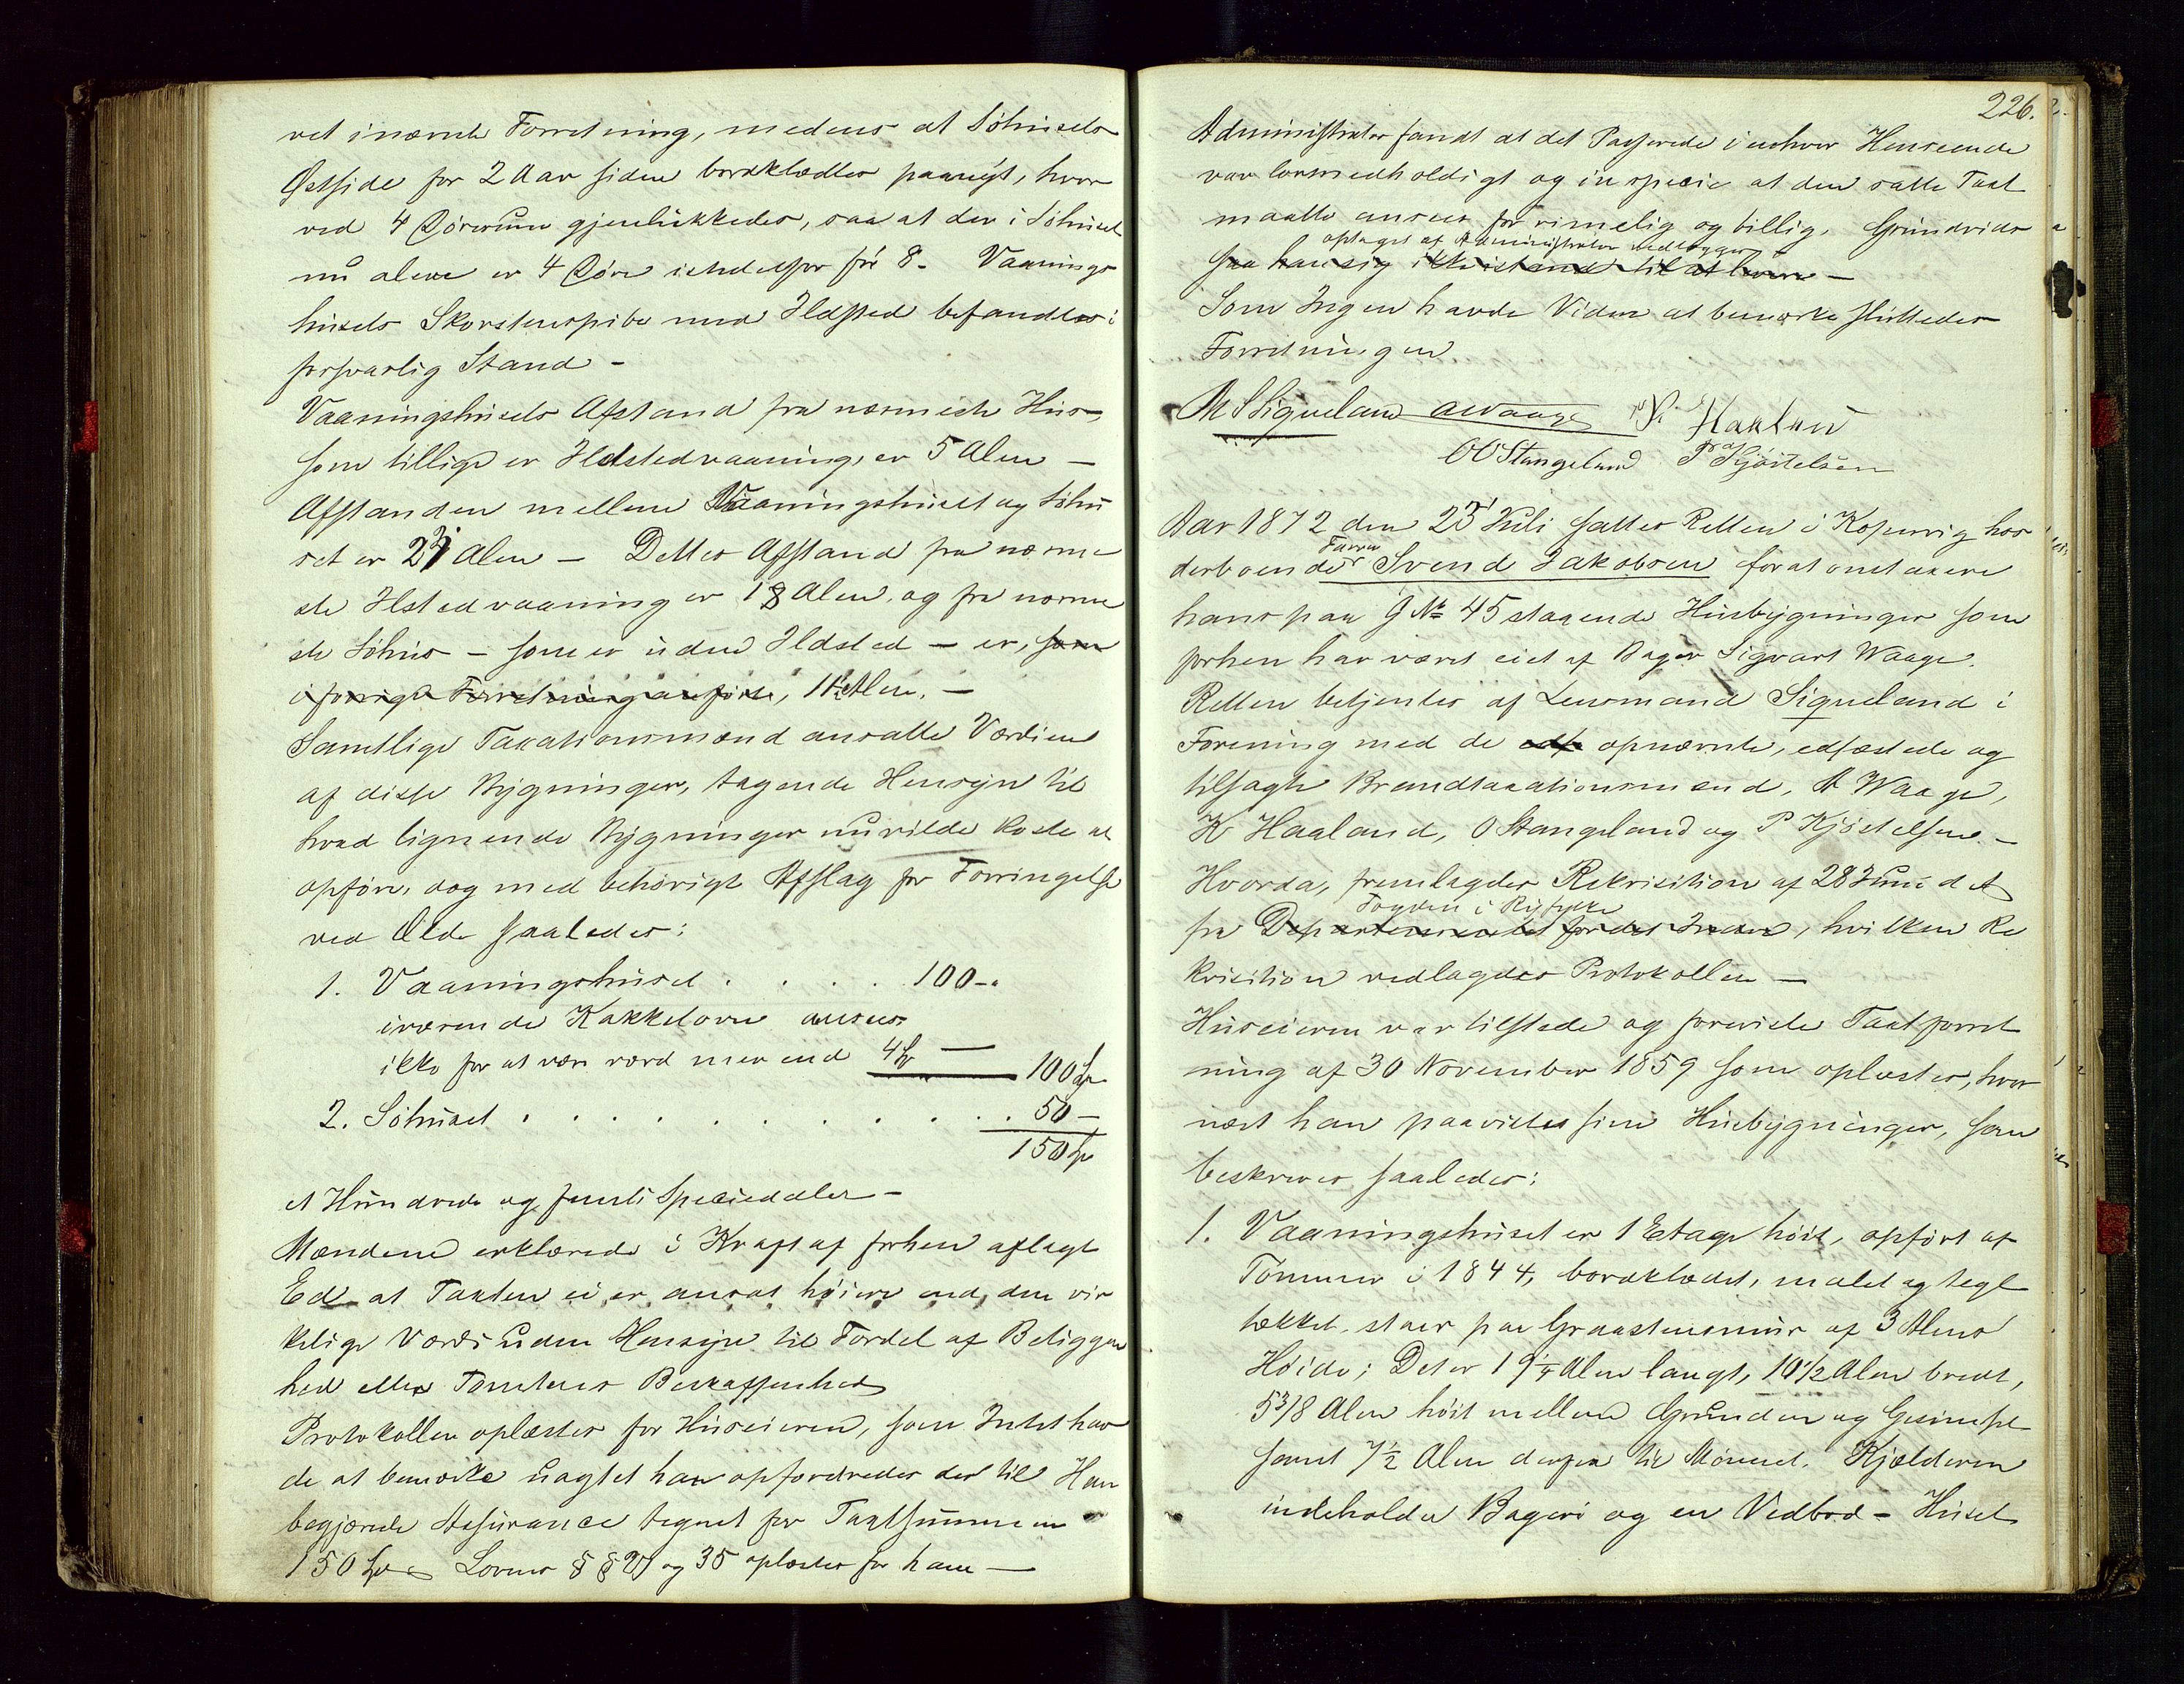 vet i nævnte Forretning, medens at Söhusets
Østside for 2 Aar siden bordklædtes paanyt, hvor
ved 4 Dörerum gjenlukkedes, saa at der i Söhuset
nu alene er 4 Döre istedetfor för 8. Vaanings
husets Skorstenspibe med Ildsted befandtes i
forsvarlig Stand –
Vaaningshusets Afstand fra nærmeste Hus,
som tillige er Ildstedvaaning, er 5 Alen –
Afstanden mellem Vaaningshuset og Söhu
set er Alen – Dettes Afstand fra nærme
ste Ilstedvaaning er 18 Alen, og fra nærme
ste Söhus – som er uden Ildsted – er, som
i forrige Forretning anförte, Alen. –
Samtlige Taxationsmænd ansatte Værdien
af disse Bygninger, tagende Hensyn til
hvad lignende Bygninger nu vilde koste at
opföre, dog med behörigt Afslag for Forringelse
ved Ælde saaledes:
1. Vaaningshuset . . . . 100 –
iværende Kakkelovne ansees
ikke for at være værd mer end 4 Sp — 100 Sp
2. Söhuset . . . . . . . . . . 50 –
150 Sp
et Hundrede og femti Speciedaler –
Mændene erklærede i Kraft af forhen aflagt
Ed at Taxten ei er ansat höiere end den vir
kelige Værdi uden Hensyn til Fordel af Beliggen
hed eller Tomtens Beskaffenhed
Protokollen oplæstes for Huseieren, som Intet hav
de at bemærke uagtet han opfordredes dertil Han
begjærede Assurance tegnet for Taxtsummen
150 Sp Lovens §§ og 35 oplæstes for ham —
226.
Administrator fandt at det Passerede i enhver Henseende
var lovmedholdigt og in specie at den satte Taxt
maatte ansees for rimelig og billig. Grundrids
optaget af Administrator vedlægges
saa han sig ikke istand til at levere –
Som Ingen havde Videre at bemærke sluttedes
Forretningen
M S Siqueland A Waage Haaland
O O Stangeland P Kjöstelsen
Aar 1872 den 25 Juli sattes Retten i Kopervig hos
Farver
derboende Svend Jakobsen for at omtaxere
hans paa G № 45 staaende Husbygninger som
forhen har været eiet af Bager Sigvart Waage.
Retten betjentes af Lensmand Siqueland i
Forening med de edf opnævnte, edfæstede og
tilsagte Brandtaxationsmænd, A Waage,
K Haaland, O Stangeland og P Kjöstelsen. –
Hvorda, fremlagdes Rekvisition af 28 Juni d A
Fogden i Ryfylke
fra Departementet for det Indre, hvilken Re
kvisition vedlagdes Protokollen —
Huseieren var tilstede og foreviste Taxtforret
ning af 30 November 1859 som oplæstes, hvor
næst han paaviste sine Husbygninger, som
beskrives saaledes:
1. Vaaningshuset er 1 Etage höit, opfört af
Tömmer i 1844, bordklædet, malet og tegl
tækket, staar paa Graastensmur af 3 Alens
Höide; Det er 19¼ Alen langt, 10½ Alen bredt,
5 3/8 Alen höit mellem Grunden og Gesimset
samt 7½ Alen derfra til Mönnet. Kjælderen
indeholder Bageri og en Vedbod – Huset